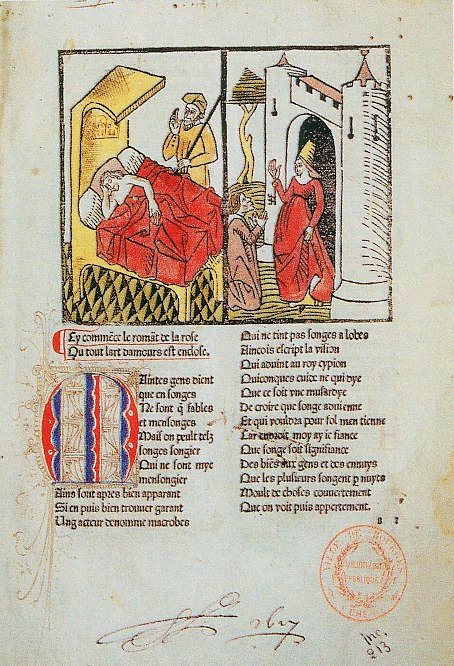 Cy commēce le romāt de la rose
Ou tout lart damours est enclose.
Maintes gens dient
que en songes
Ne sont q̄ fables
et mensonges
Mais on peult telz
songes songier
Qui ne sont mye
mensongier
Ains sont apres bien apparant
Si en puis bien trouver garant
Ung acteur denomme macrobes
Qui ne tint pas songes a lobes
Aincois escript la vision
Qui advint au roy cypion
Quiconques cuide ne qui dye
Que ce soit vne musardye
De croire que songe aduienne
Et qui vouldra pour fol men tienne
Car endroit moy ay ie fiance
Que songe soit signifiance
Des biēs aux gens et des ennuys
Que les plusieurs songent p nuyts
Moult de choses couuertement
Que on voit puis appertement.
VILLE DE
BIBLIOTHEQUE
PUBLIQUE
Inc.
213